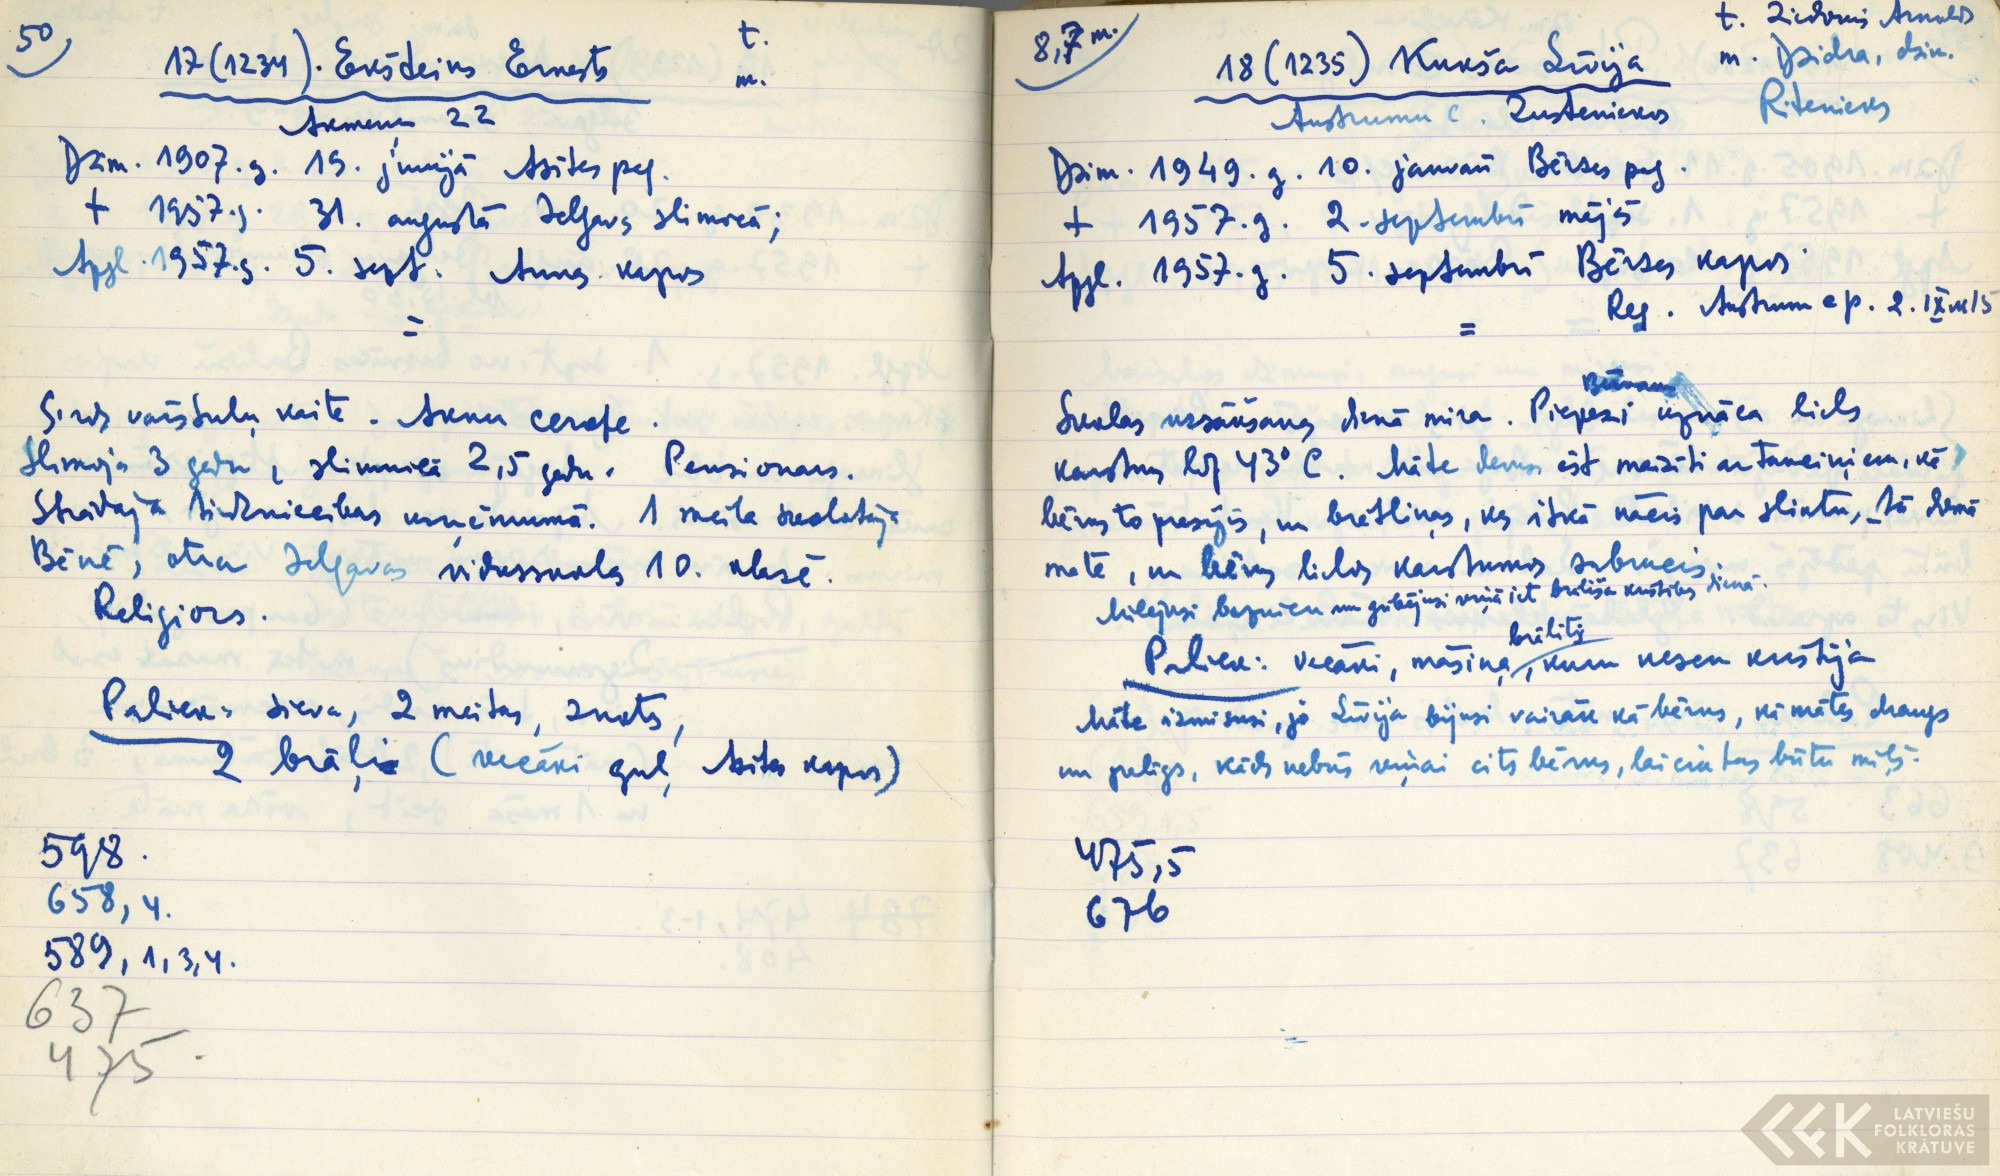 50
17 (1234). Ekšteins Ernests
t.
m.
Akmeņu 22
Dzim. 1907. g. 19. jūnijā Asītes pag.
+ 1957. g. 31. augustā Jelgavas slimnīcā;
Apgl. 1957. g. 5. sept. Annas kapos
=
Sirds vārstuļu kaite. Aknu ceroze.
Slimoja 3 gadu, slimnīcā 2,5 gadu. Pensionārs.
Strādāja tirdzniecības uzņēmumā. 1 meita skolotāja
Bēnē, otra Jelgavas vidusskolas 10. klasē.
Religiozs.
Paliek: sieva, 2 meitas, znots,
2 brāļi (vecāki guļ Asītes kapos)
598.
658, 4.
589, 1, 3, 4.
637
475.
8,7 m.
18 (1235) Kukša Līvija
t. Ziedonis Arnolds
m. Dzidra, dzim.
Ritenieks
Austrumu c. Zusteniekos
Dzim. 1949. g. 10. janvārī Bērzes pag.
+ 1957. g. 2. septembrī mājās
Apgl. 1957. g. 5. septembrī Bērzes kapos
Reg. Austrum ep. 2. IX
=
Skolas uzsākšanas dienā mira. Piepeši uznāca liels
karstums līdz 43° C. Māte devusi ēst maizīti ar kā
bērns to prasījis, un brētliņas, kas itkā nācis par sliktu, tā domā
māte, un bērns lielos karstumos
Mīlējusi baznīcu un gribējusi viņā iet brālīša kristības dienā.
Paliek: vecāki, māsiņa, brālītis, kuru nesen kristīja
Māte izmisusi, jo Līvija bijusi vairāk kā bērns, kā mātes draugs
un palīgs, kāds nebūs viņai cits bērns, lai cik tas būtu mīļš.
475, 5
676
LATVIEŠU
FOLKLORAS
KRĀTUVE